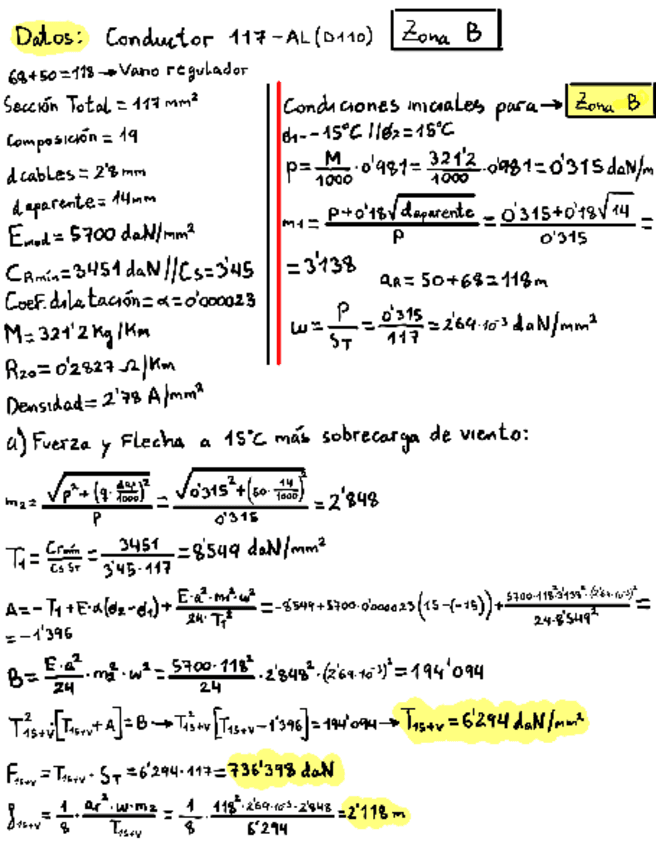 Datos: Conductor 117-AL (D110) Zona B
68+50=118 → Vano regulador
Sección Total = 117 mm²
Composición = 19
d cables = 2'8 mm
d aparente = 14mm
Emod = 5700 daN/mm²
CRmin = 3451 daN // Cs = 3'45
Coef. dilatación = α = 0'000023
M = 321'2 Kg/Km
R20 = 0'2827 Ω/Km
Densidad = 2'78 A/mm²
Condiciones iniciales para → Zona B
θ1 = -15°C // θ2 = 15°C
P = M/1000 · 0'981 = 321'2/1000 · 0'981 = 0'315 daN/m
m1 = (P + 0'18√daparente)/P = (0'315 + 0'18√14)/0'315 =
= 3'138
aR = 50+68 = 118m
w = P/ST = 0'315/117 = 2'69·10⁻³ daN/mm²
a) Fuerza y Flecha a 15°C más sobrecarga de viento:
m2 = √(P² + (q · dap/1000)²)/P = √(0'315² + (50 · 14/1000)²)/0'315 = 2'848
T1 = Crmin/(Cs ST) = 3451/(3'45·117) = 8'549 daN/mm²
A = -T1 + E·α(θ2-θ1) + (E·a²·m1²·w²)/(24·T1²) = -8'549 + 5700·0'000023(15-(-15)) + (5700·118²·3'138²·(2'69·10⁻³)²)/(24·8'549²) =
= -1'396
B = (E·a²)/24 · m2² · w² = (5700·118²)/24 · 2'848² · (2'69·10⁻³)² = 194'094
T²15+v · [T15+v + A] = B → T²15+v [T15+v - 1'396] = 194'094 → T15+v = 6'294 daN/mm²
F15+v = T15+v · ST = 6'294·117 = 736'398 daN
f15+v = 1/8 · (ar²·w·m2)/T15+v = 1/8 · (118²·2'69·10⁻³·2'848)/6'294 = 2'118 m